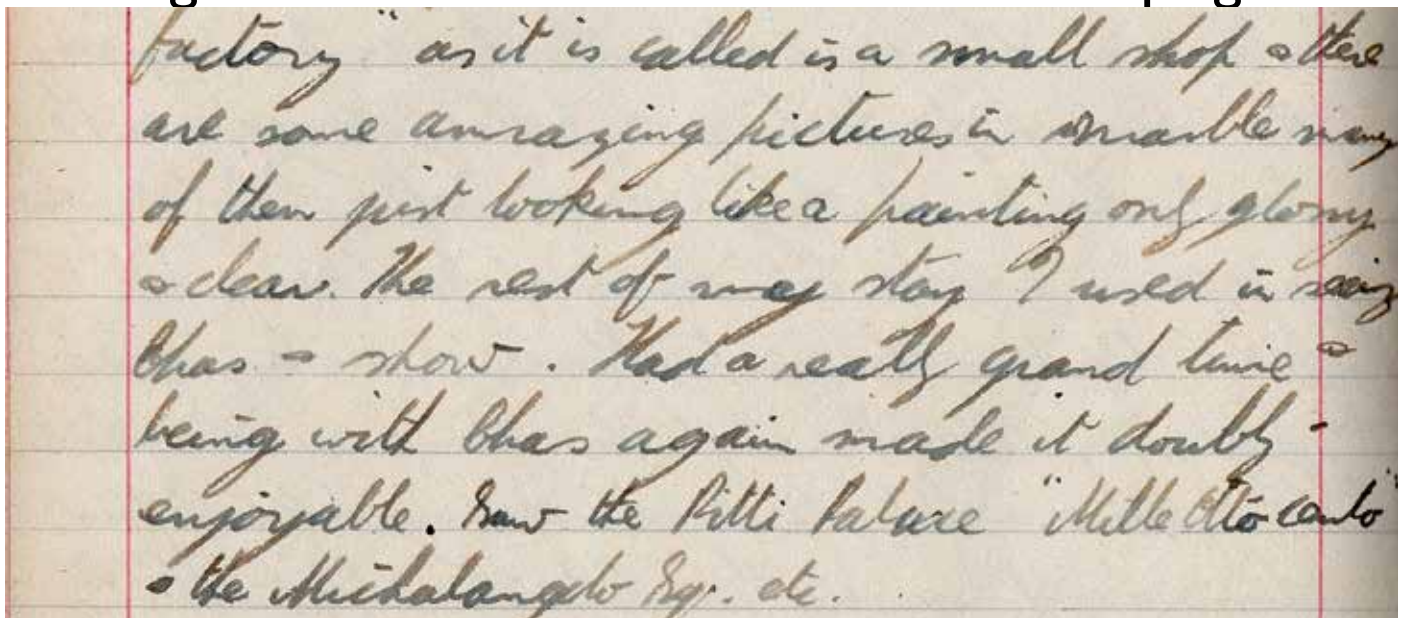 factory" as it is called is a small shop & there
are some amazing pictures in marble many
of them just looking like a painting only glossy
& clear. The rest of my stay I used in seeing
Chas & show. Had a really grand time &
being with Chas again made it doubly -
enjoyable. Saw the Pitti Palace "Mille Otto cento"
& the Michalangelo Sq. etc.